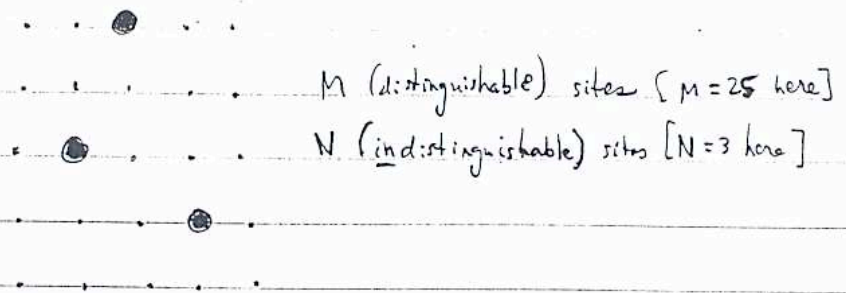 M (distinguishable) sites [M = 25 here]
N (indistinguishable) sites [N = 3 here]